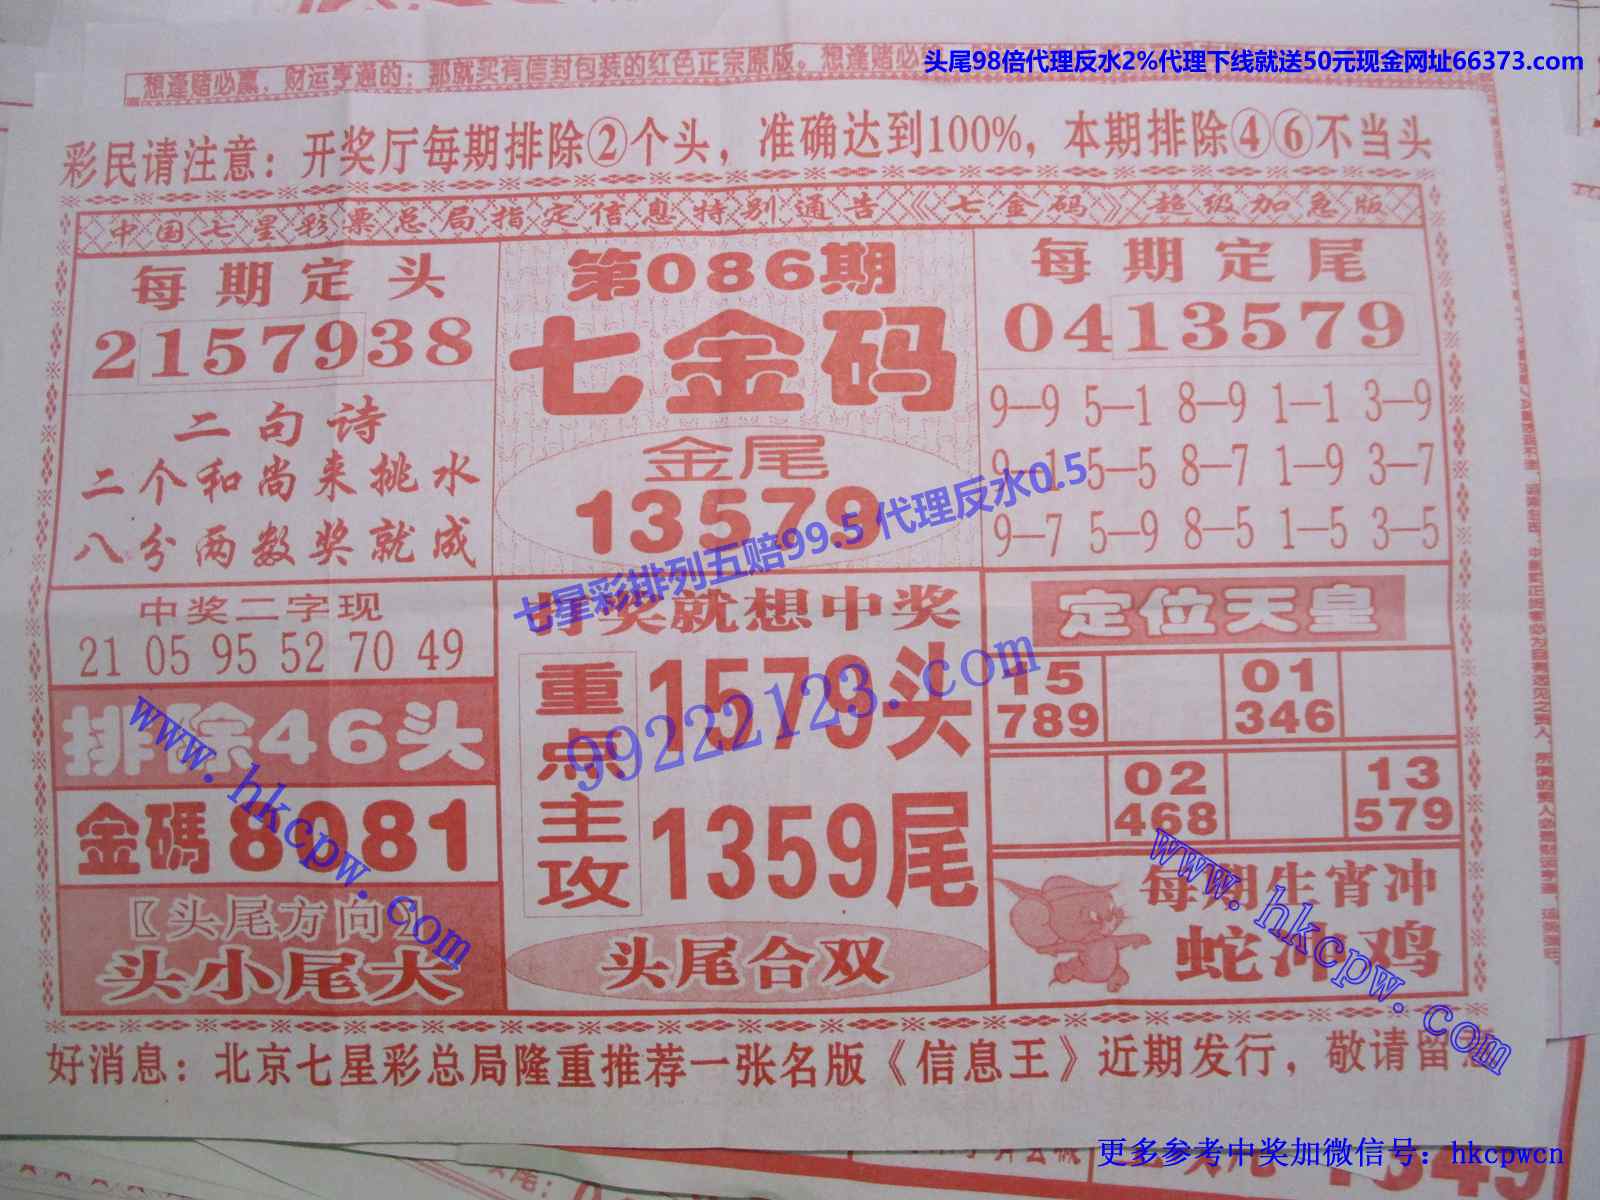 头尾98倍代理反水2%代理下线就送50元现金网址66373.com
想逢赌必赢，财运亨通的：那就买有信封包装的红色正宗原版。想逢赌必
彩民请注意：开奖厅每期排除②个头，准确达到100%，本期排除④⑥不当头
中国七星彩票总局指定信息特别通告《七金码》超级加急版
每期定头
2157938
二句诗
二个和尚来挑水
八分两数奖就成
第086期
七金码
金尾
13579
每期定尾
0413579
9—9 5—1 8—9 1—1 3—9
9—1 5—5 8—7 1—9 3—7
9—7 5—9 8—5 1—5 3—5
七星彩排列五赔99.5 代理反水0.5
中奖二字现
21 05 95 52 70 49
排除46头
金碼8081
〖头尾方向〗
头小尾大
奖就想中奖
重点主攻
1579头
1359尾
头尾合双
99222123.com
定位天皇
15 01
789 346
02 13
468 579
每期生肖冲
蛇冲鸡
www.hkcpw.com
www.hkcpw.com
好消息：北京七星彩总局隆重推荐一张名版《信息王》近期发行，敬请留意
更多参考中奖加微信号：hkcpwcn